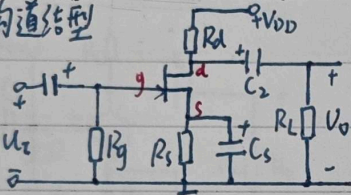 沟道结型
+VDD
Rd
+
d
C2
+
g
s
+
Ui
Rg
Rs
+
Cs
RL
+
U0
-